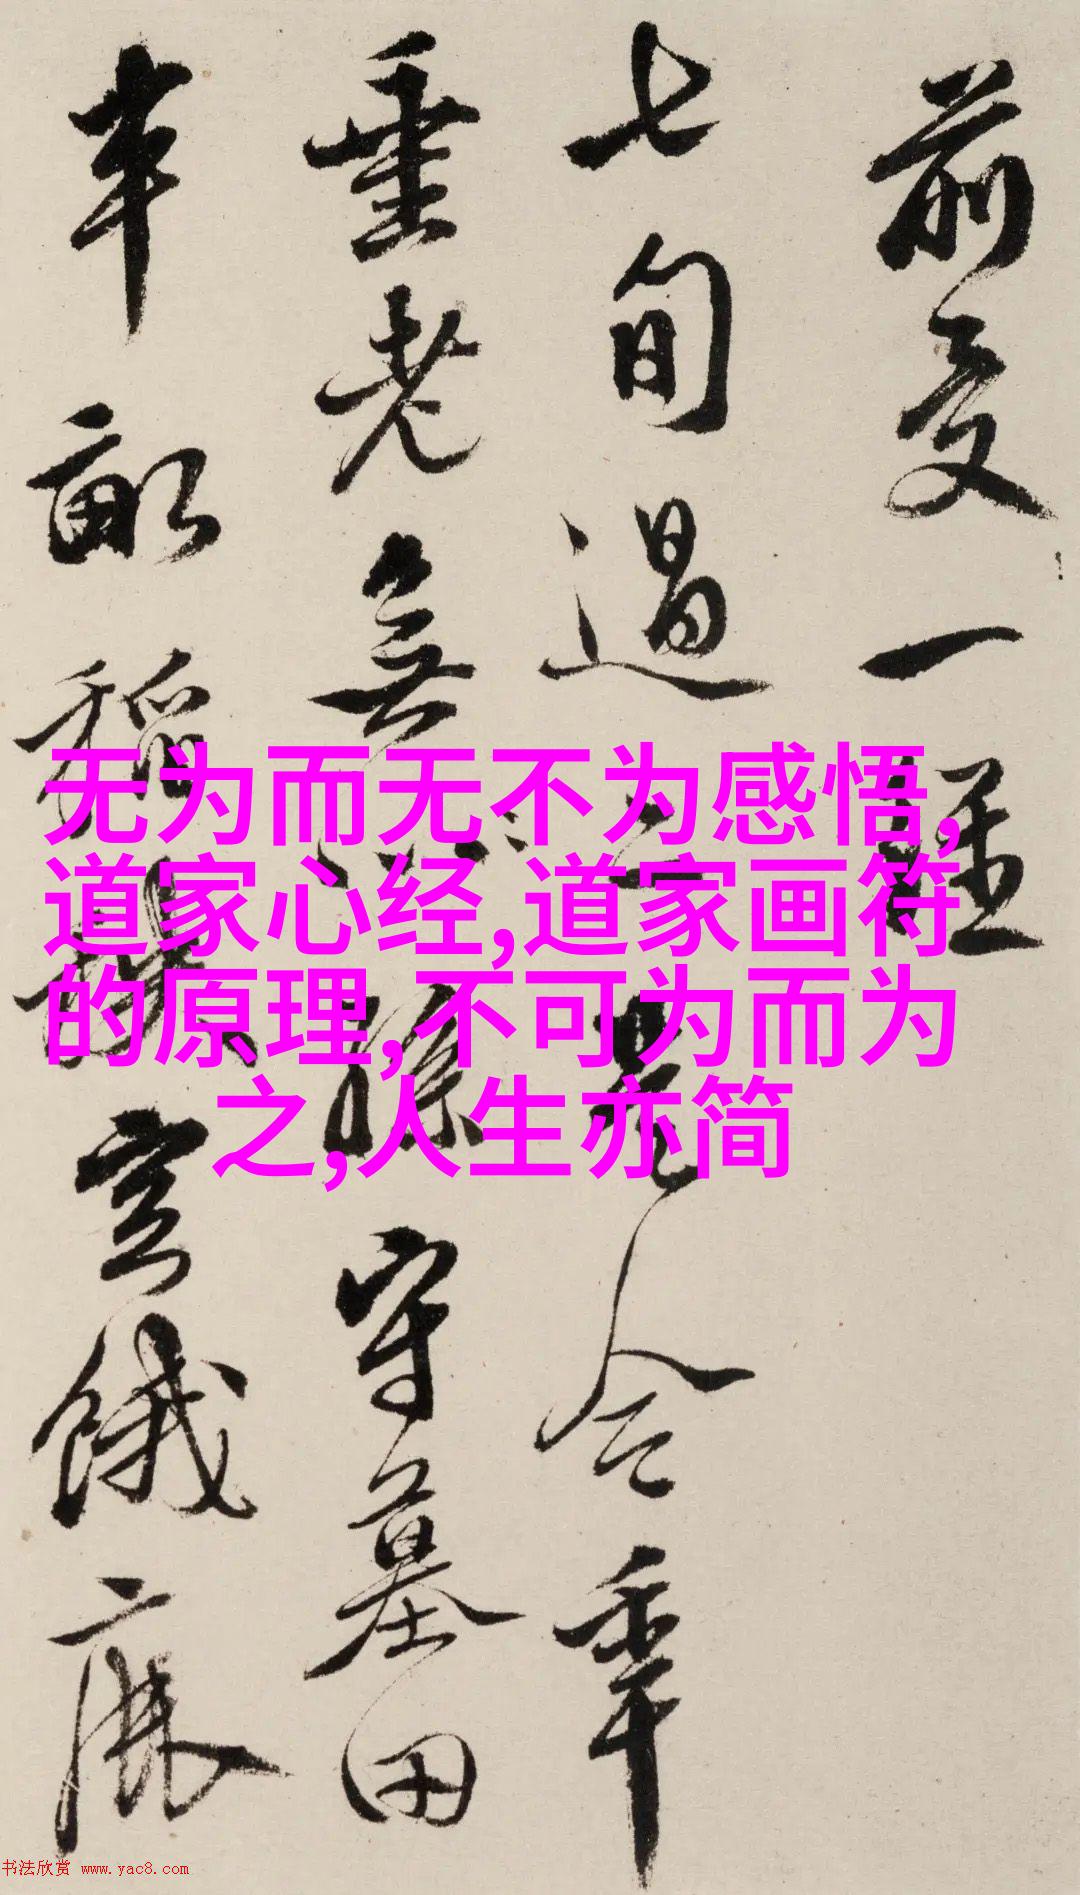 前受一
七旬過二是今年
垂老無孫守墓田
半畝稻
无为而无不为感悟,
道家心经,道家画符
的原理,不可为而为
之,人生亦简
书法欣赏 www.yac8.com